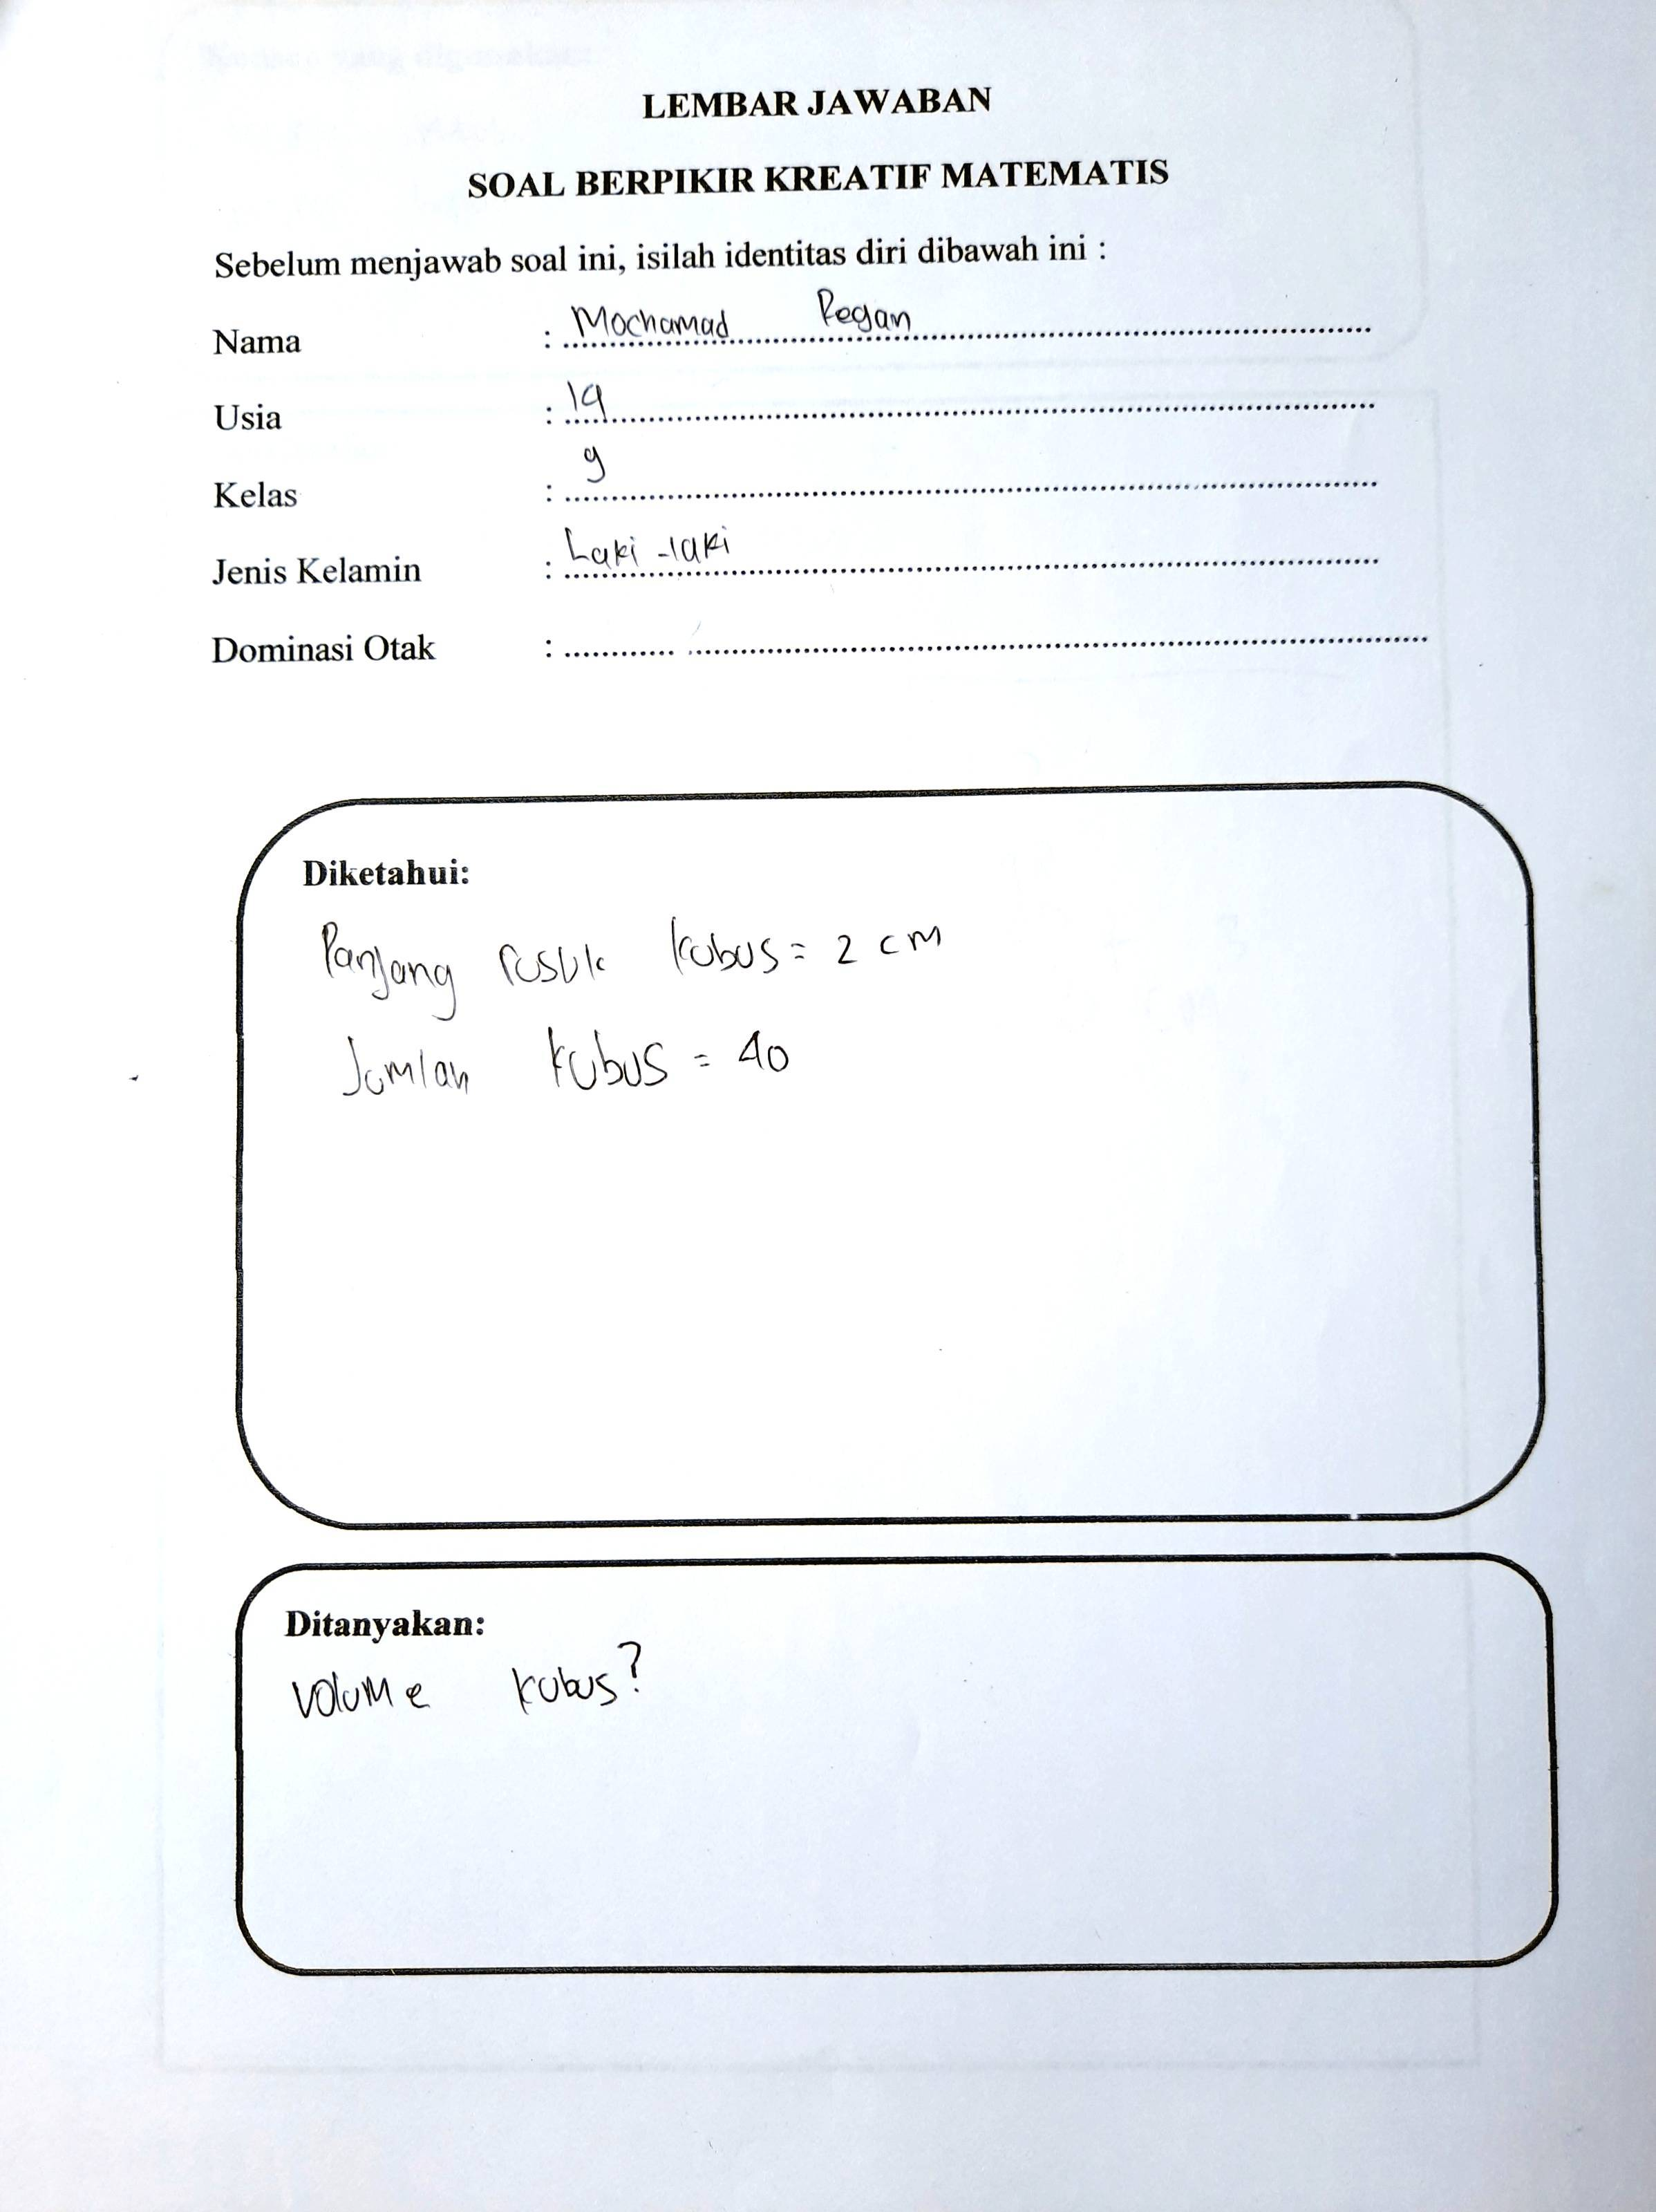 LEMBAR JAWABAN
SOAL BERPIKIR KREATIF MATEMATIS
Sebelum menjawab soal ini, isilah identitas diri dibawah ini :
Nama : Mochamad Regan
Usia : 14
Kelas : 9
Jenis Kelamin : Laki-laki
Dominasi Otak :
Diketahui:
Panjang rusuk kubus = 2 cm
Jumlah kubus = 40
Ditanyakan:
Volume kubus?